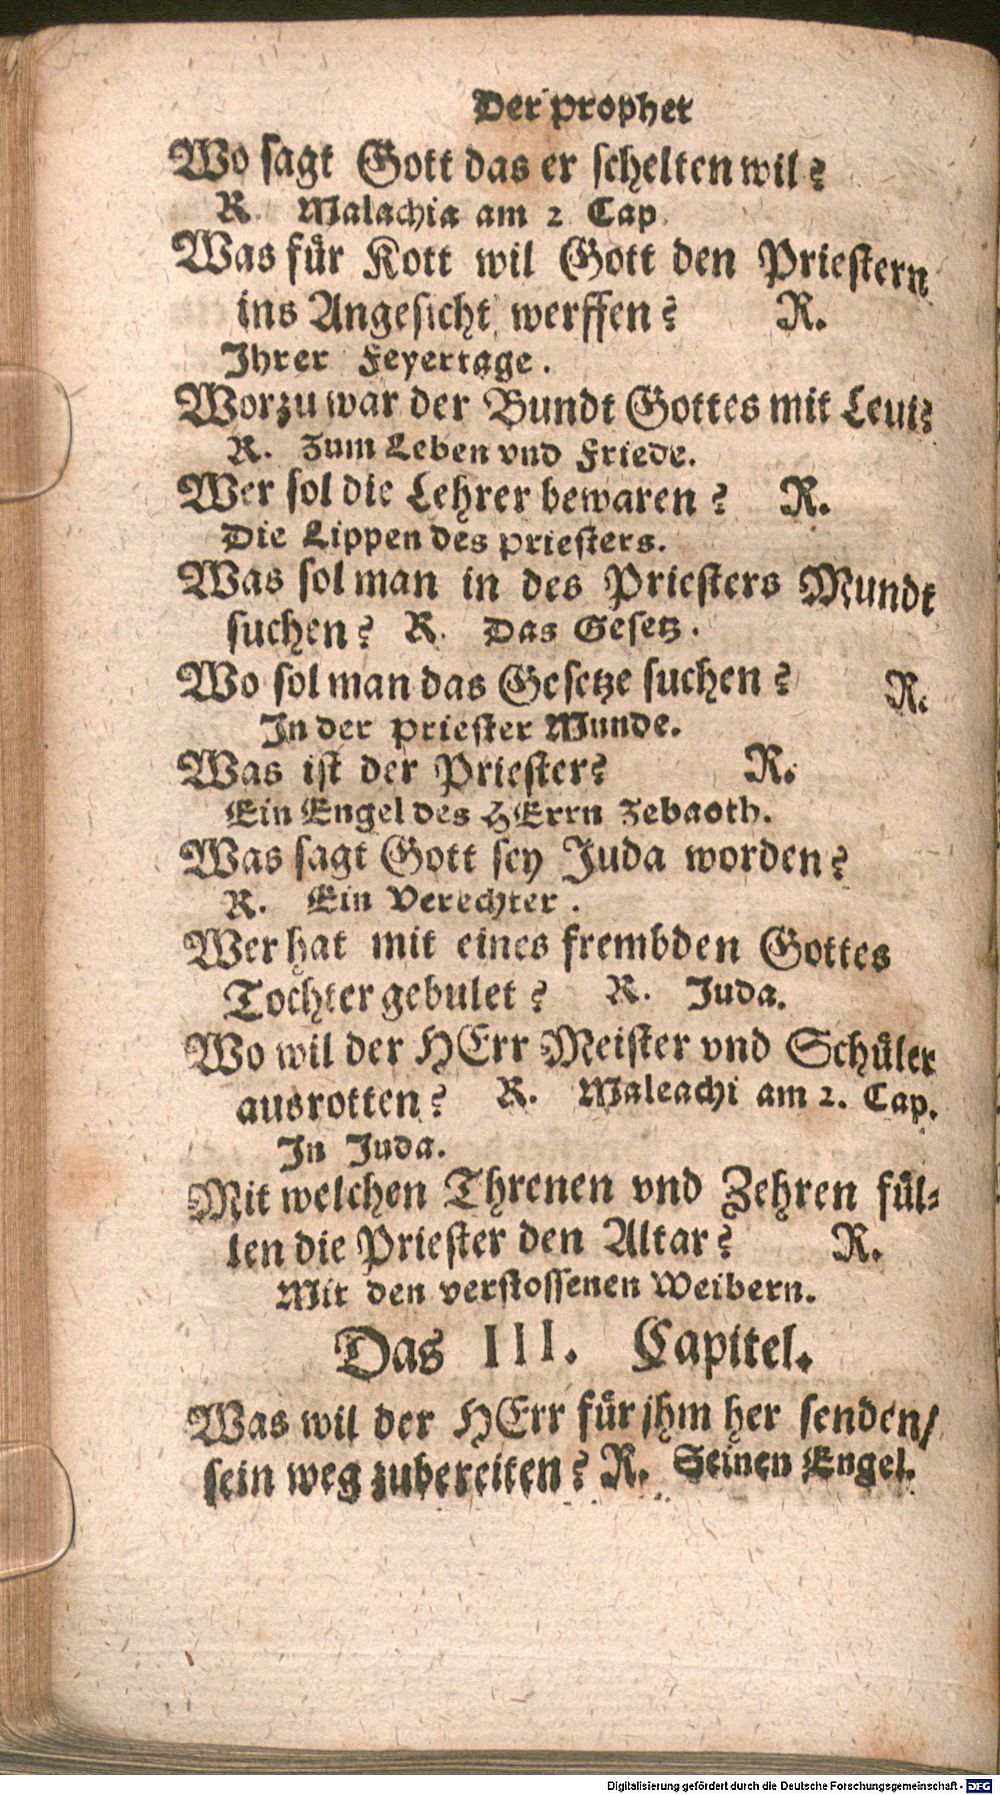 Der prophet
Wo sagt Gott das er schelten wil?
R. Malachia am 2 Cap.
Was für Kott wil Gott den Priestern
ins Angesicht werffen? R.
Ihrer Feyertage.
Worzu war der Bundt Gottes mit Leui?
R. Zum Leben vnd Friede.
Wer sol die Lehrer bewaren? R.
Die Lippen des priesters.
Was sol man in des Priesters Mundt
suchen? R. Das Gesetz.
Wo sol man das Gesetze suchen? R.
In der priester Munde.
Was ist der Priester? R.
Ein Engel des HErrn Zebaoth.
Was sagt Gott sey Juda worden?
R. Ein Verechter.
Wer hat mit eines frembden Gottes
Tochter gebulet? R. Juda.
Wo wil der HErr Meister vnd Schüler
ausrotten? R. Maleachi am 2. Cap.
In Juda.
Mit welchen Threnen vnd Zehren fül-
len die Priester den Altar? R.
Mit den verstossenen Weibern.
Das III. Capitel.
Was wil der HErr für jhm her senden/
sein weg zubereiten? R. Seinen Engel.
Digitalisierung gefördert durch die Deutsche Forschungsgemeinschaft - DFG